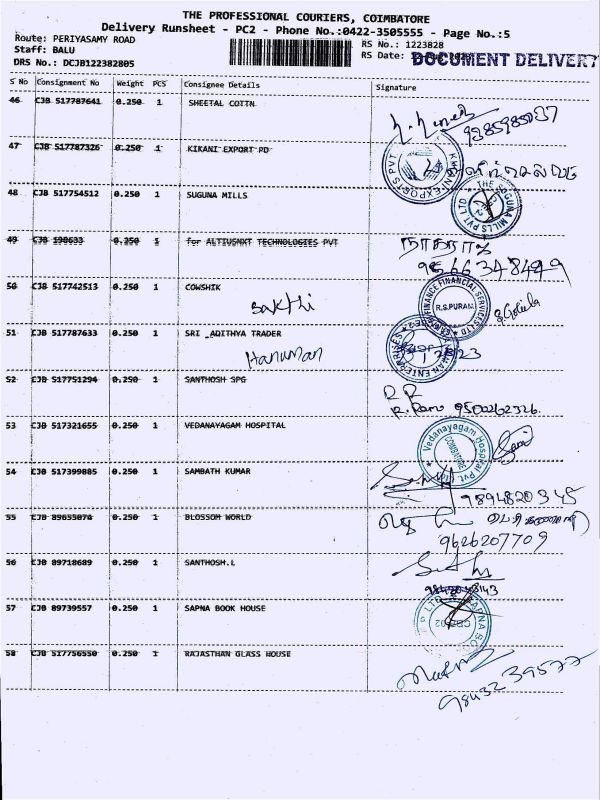 THE PROFESSIONAL COURIERS, COIMBATORE
Delivery Runsheet - PC2 - Phone No.:0422-3505555 - Page No.:5
Route: PERIYASAMY ROAD
Staff: BALU
DRS No.: DCJB122382805
RS No.: 1223828
RS Date:
DOCUMENT DELIVERY
S No Consignment No Weight PCS Consignee Details Signature
46 CJB 517787641 0.250 1 SHEETAL COTTN
47 CJB 517787326 0.250 1 KIKANI EXPORT PD
48 CJB 517754512 0.250 1 SUGUNA MILLS
THE SUGUNA MILLS PVT LTD
49 CJB 190633 0.250 1 for ALTIUSNXT TECHNOLOGIES PVT
நாகராஜ
9566348449
50 CJB 517742513 0.250 1 COWSHIK
Sakthi
FINANCE FINANCIAL SERVICES LTD
R.S.PURAM
51 CJB 517787633 0.250 1 SRI _ADITHYA TRADER
Hanuman
ENTERPRISES
52 CJB 517751294 0.250 1 SANTHOSH SPG
9500262326
53 CJB 517321655 0.250 1 VEDANAYAGAM HOSPITAL
Vedanayagam Hospital Pvt. Ltd
COIMBATORE
54 CJB 517399885 0.250 1 SAMBATH KUMAR
9894820345
55 CJB 89655074 0.250 1 BLOSSOM WORLD
9626207709
56 CJB 89718689 0.250 1 SANTHOSH.L
57 CJB 89739557 0.250 1 SAPNA BOOK HOUSE
58 CJB 517756550 0.250 1 RAJASTHAN GLASS HOUSE
98432 39577